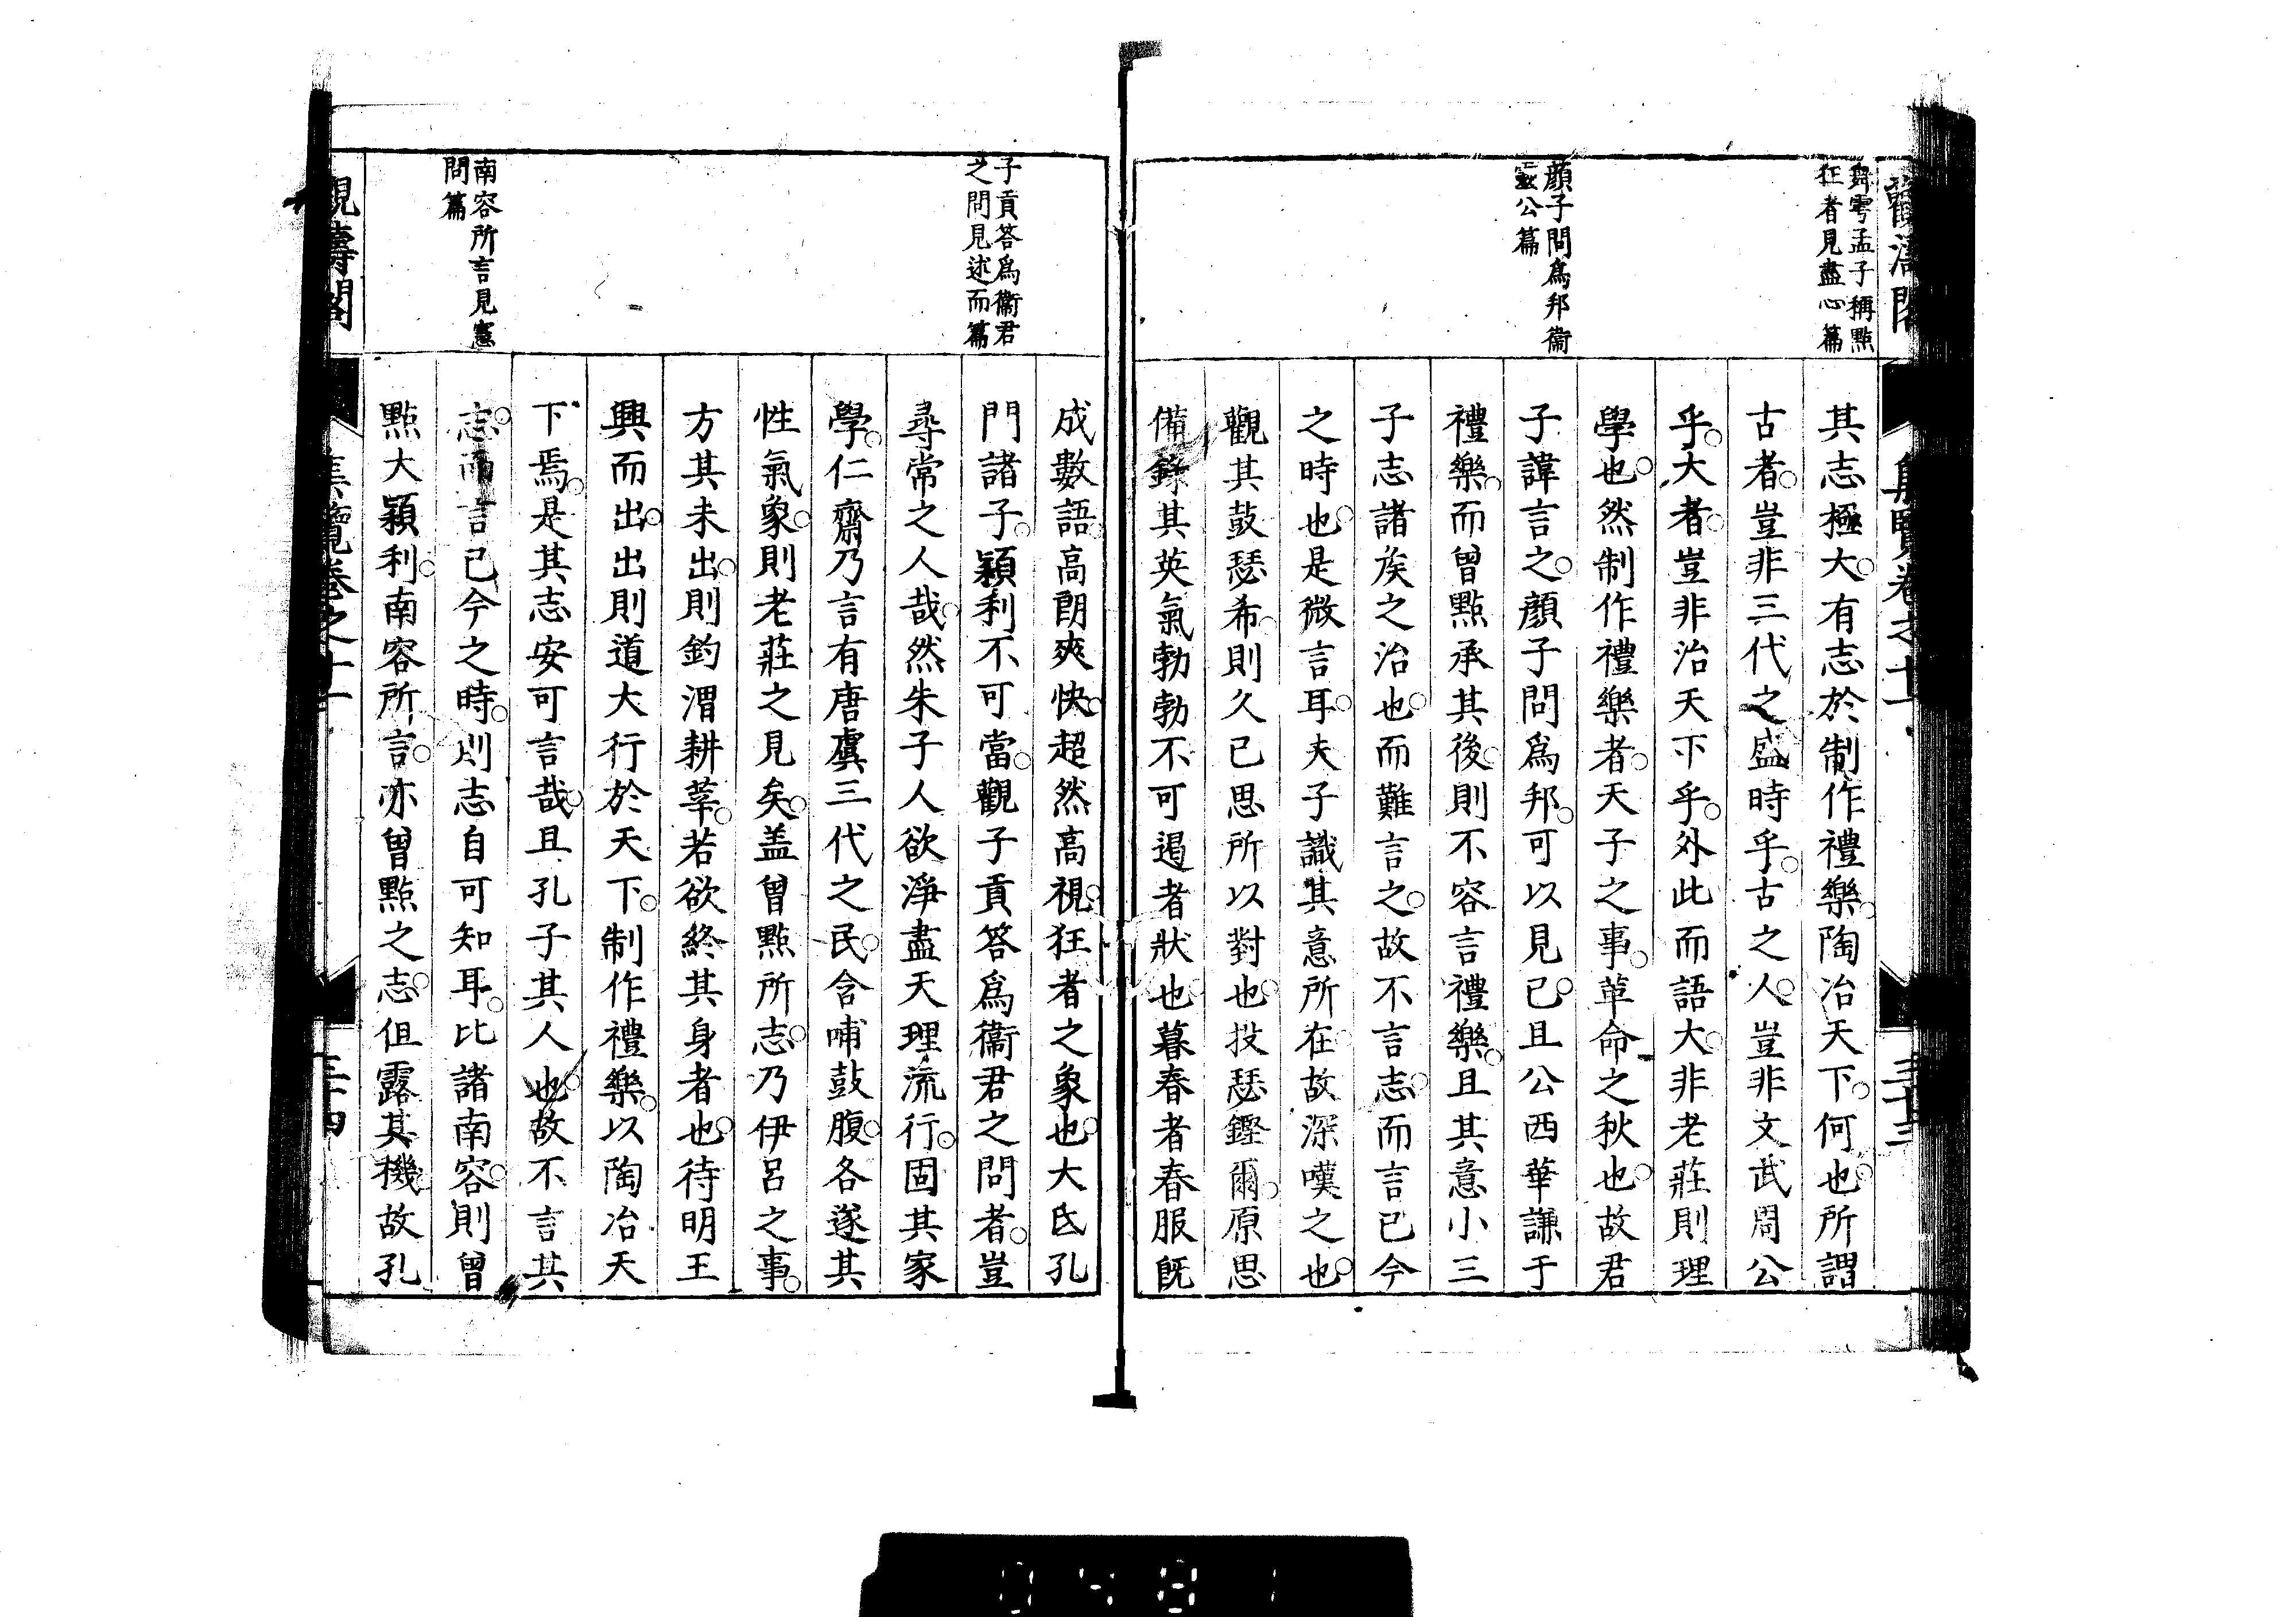 舞雩孟子稱點
狂者見盡心篇
顔子問爲邦衞
靈公篇
其志極大有志於制作禮樂陶冶天下何也所謂
古者豈非三代之盛時乎古之人豈非文武周公
乎大者豈非治天下乎外此而語大非老莊則理
學也然制作禮樂者天子之事革命之秋也故君
子諱言之顔子問爲邦可以見已且公西華謙于
禮樂而曾點承其後則不容言禮樂且其意小三
子志諸矦之治也而難言之故不言志而言已今
之時也是微言耳夫子識其意所在故深嘆之也
觀其鼓瑟希則久已思所以對也投瑟鏗爾原思
備錄其英氣勃勃不可遏者狀也暮春者春服旣
子貢答爲衞君
之問見述而篇
南容所言見憲
問篇
成數語高朗爽快超然高視狂者之象也大氐孔
門諸子穎利不可當觀子貢答爲衞君之問者豈
尋常之人哉然朱子人欲淨盡天理流行固其家
學仁齋乃言有唐虞三代之民含哺鼓腹各遂其
性氣象則老莊之見矣盖曾點所志乃伊呂之事
方其未出則釣渭耕莘若欲終其身者也待明王
興而出出則道大行於天下制作禮樂以陶冶天
下焉是其志安可言哉且孔子其人也故不言其
志而言已今之時則志自可知耳比諸南容則曾
點大穎利南容所言亦曾點之志但露其機故孔